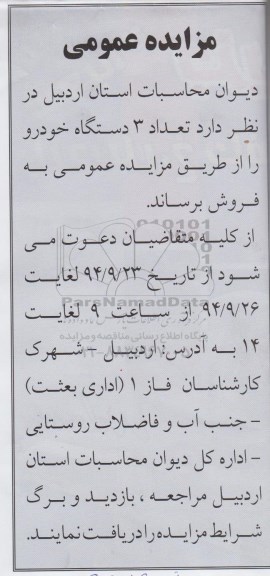 مزایده عمومی
دیوان محاسبات استان اردبیل در
نظر دارد تعداد ۳ دستگاه خودرو
را از طریق مزایده عمومی به
فروش برساند.
از کلیه متقاضیان دعوت می
شود از تاریخ ۹۴/۹/۲۳ لغایت
ParsNamadData
۹۴/۹/۲۶ از ساعت ۹ لغایت
۱۴ به آدرس: اردبیل – شهرک
کارشناسان فاز ۱ (اداری بعثت)
– جنب آب و فاضلاب روستایی
– اداره کل دیوان محاسبات استان
اردبیل مراجعه ، بازدید و برگ
شرایط مزایده را دریافت نمایند.